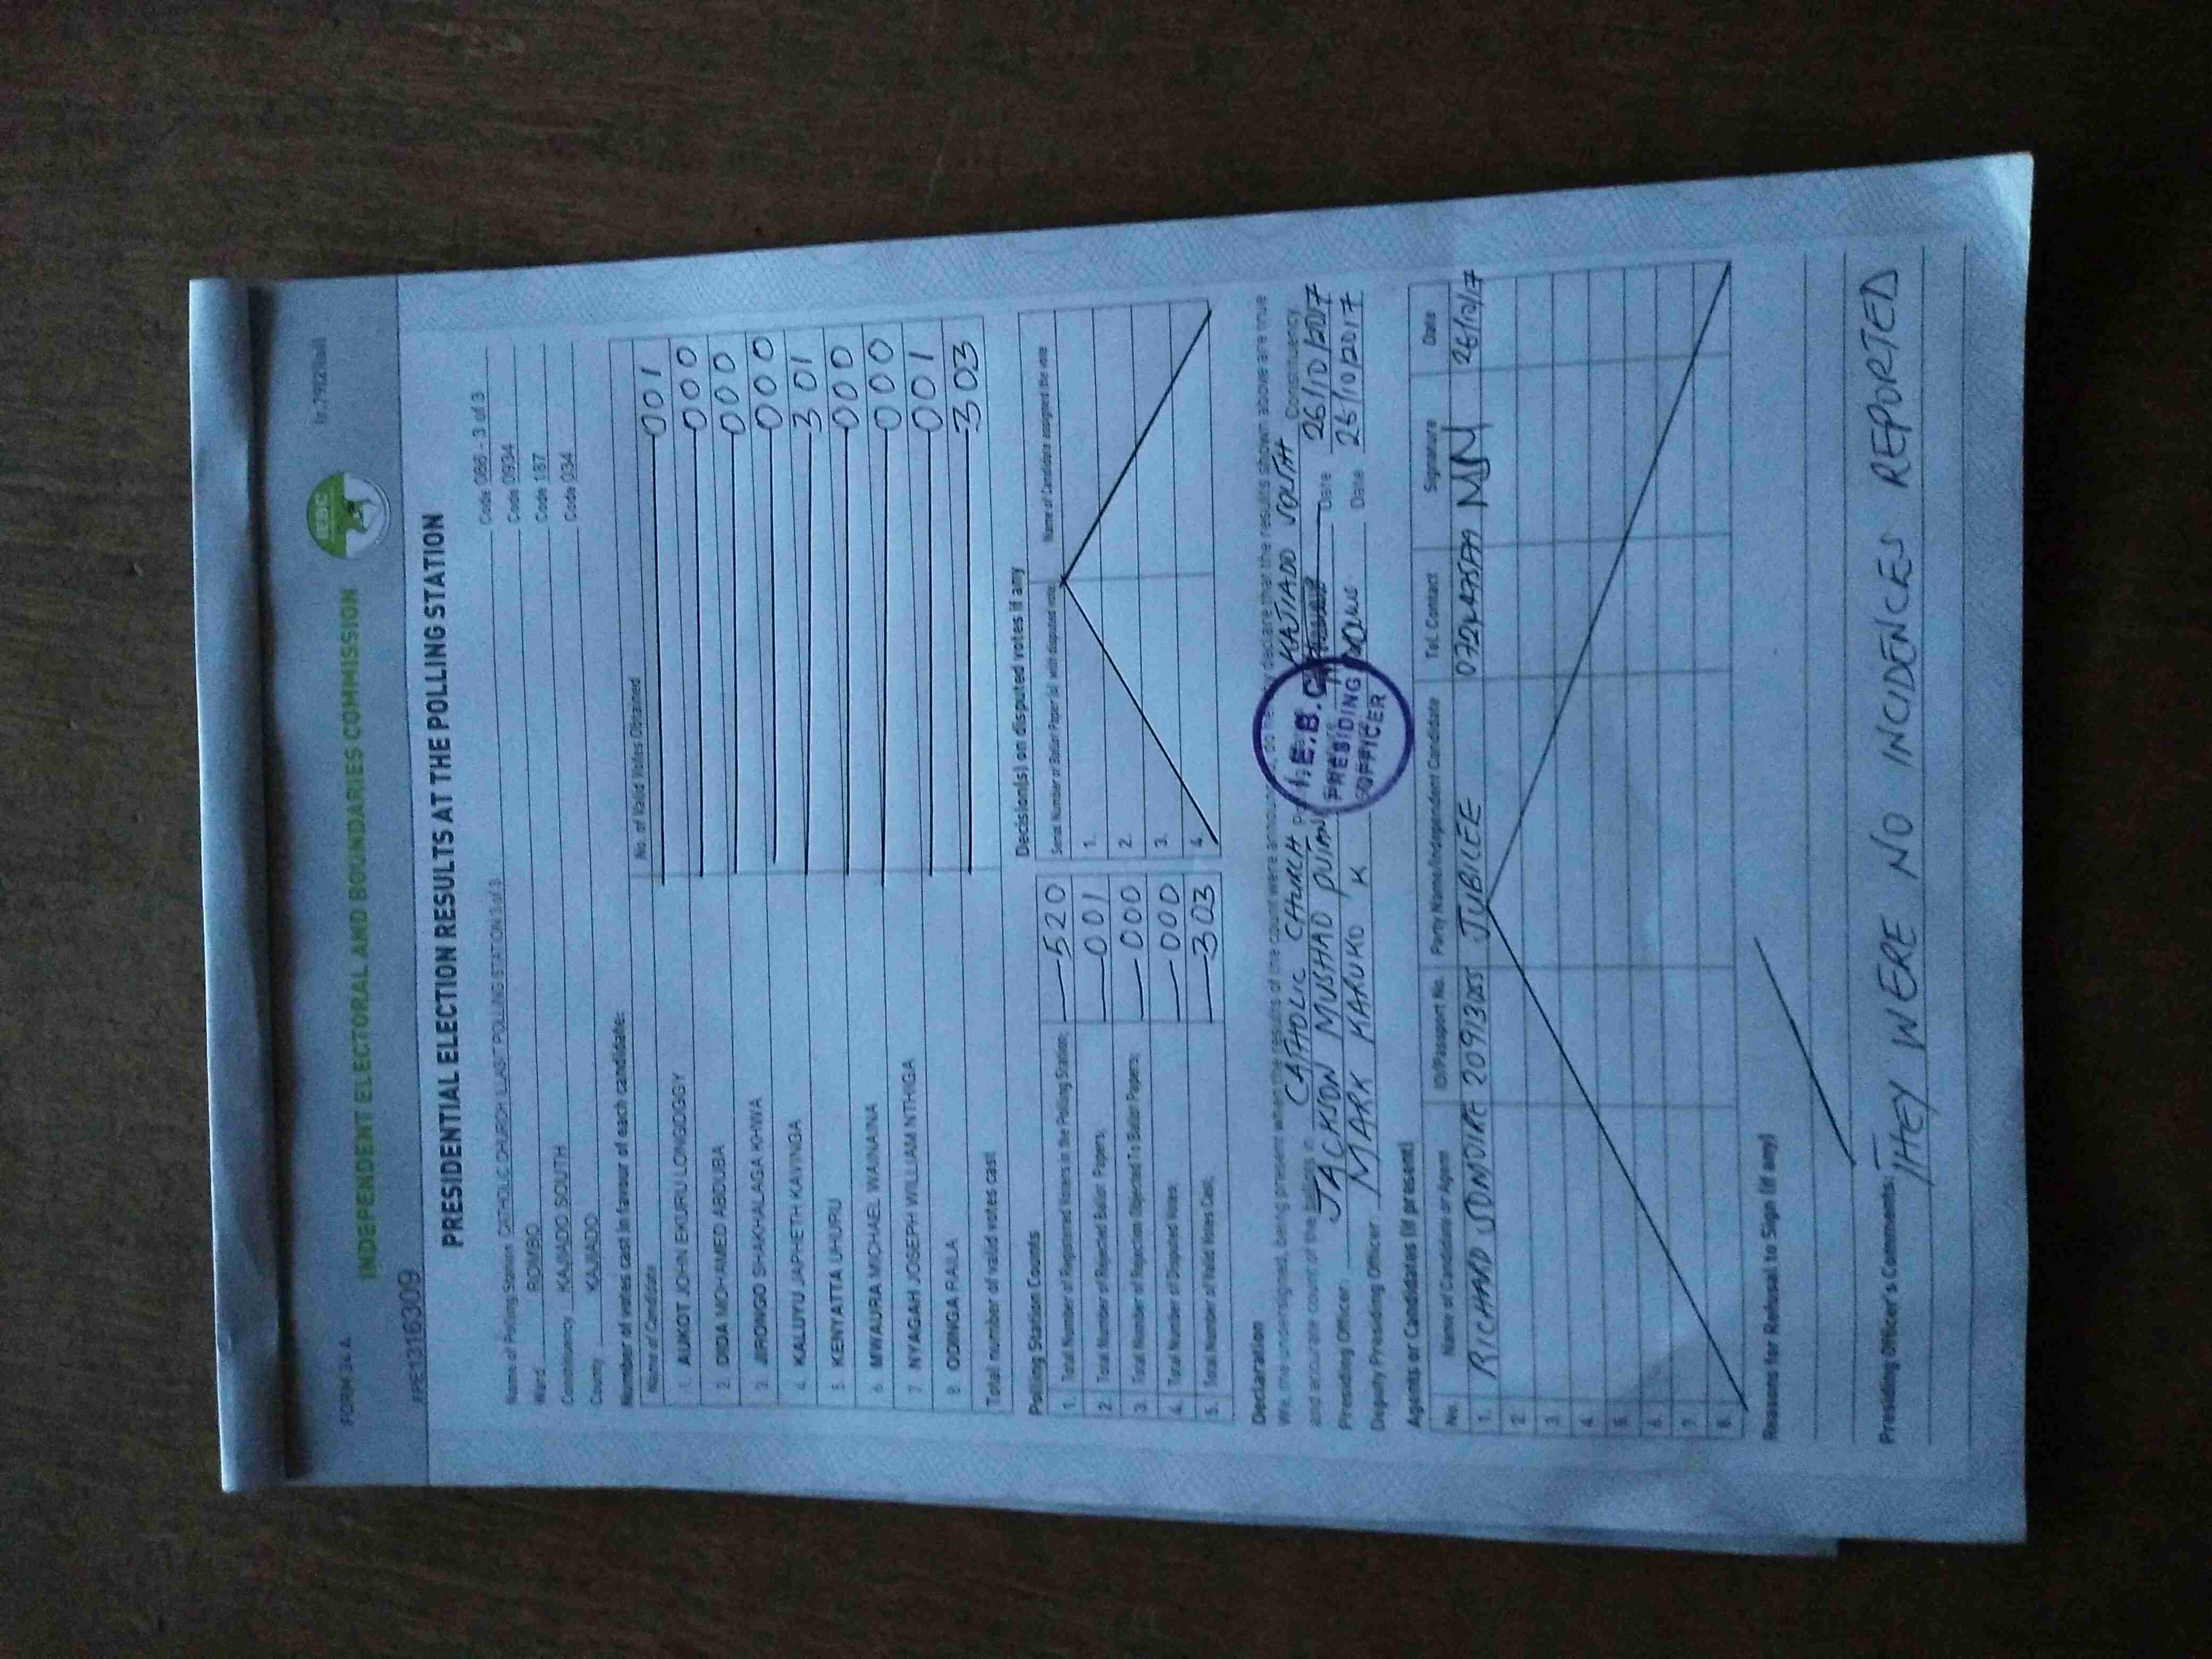 FORM 34 A
INDEPENDENT ELECTORAL AND BOUNDARIES COMMISSION
IEBC
PRESIDENTIAL ELECTION RESULTS AT THE POLLING STATION
Name of Polling Station Code 086 - 3 of 3
Ward ROMBO Code 0934
Constituency KAJIADO SOUTH Code 187
County KAJIADO Code 034
Number of votes cast in favour of each candidate:
Name of Candidate No. of Valid Votes Obtained
1. AUKOT JOHN EKURU LONGOGGY 001
2. DIDA MOHAMED ABDUBA 000
3. JIRONGO SHAKHALAGA KHWA 000
4. KALUYU JAPHETH KAVINGA 000
5. KENYATTA UHURU 301
6. MWAURA MICHAEL WAINAINA 000
7. NYAGAH JOSEPH WILLIAM NTHIGA 000
8. ODINGA RAILA 001
Total number of valid votes cast 303
Polling Station Counts
1. Total Number of Registered Voters in the Polling Station; 520
2. Total Number of Rejected Ballot Papers; 001
3. Total Number of Rejection Objected To Ballot Papers; 000
4. Total Number of Disputed Votes; 000
5. Total Number of Valid Votes Cast; 303
Decision(s) on disputed votes if any
Serial Number of Ballot Paper (s) with disputed vote Name of Candidate assigned the vote
1.
2.
3.
4.
Declaration
We, the undersigned, being present when the results of the count were declare that the results shown above are true
and accurate count of the ballots in CATHOLIC CHURCH KAJIADO SOUTH Constituency
Presiding Officer: JACKSON MUSHAO Date 26/10/2017
Deputy Presiding Officer: MARK KARUKO K Date 26/10/2017
I.E.B.C
PRESIDING
OFFICER
Agents or Candidates (if present)
No. Name of Candidate or Agent ID/Passport No. Party Name/Independent Candidate Tel. Contact Signature Date
1. RICHARD 20913055 JUBILEE 26/10/17
2.
3.
4.
5.
6.
7.
8.
Reasons for Refusal to Sign (if any)
Presiding Officer's Comments:
THEY WERE NO INCIDENCES REPORTED